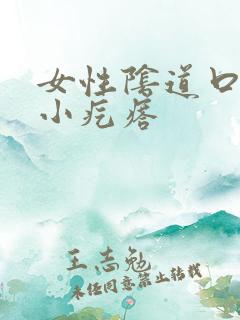 女性陰道口
小疙瘩
王志勉
未经同意禁止转载